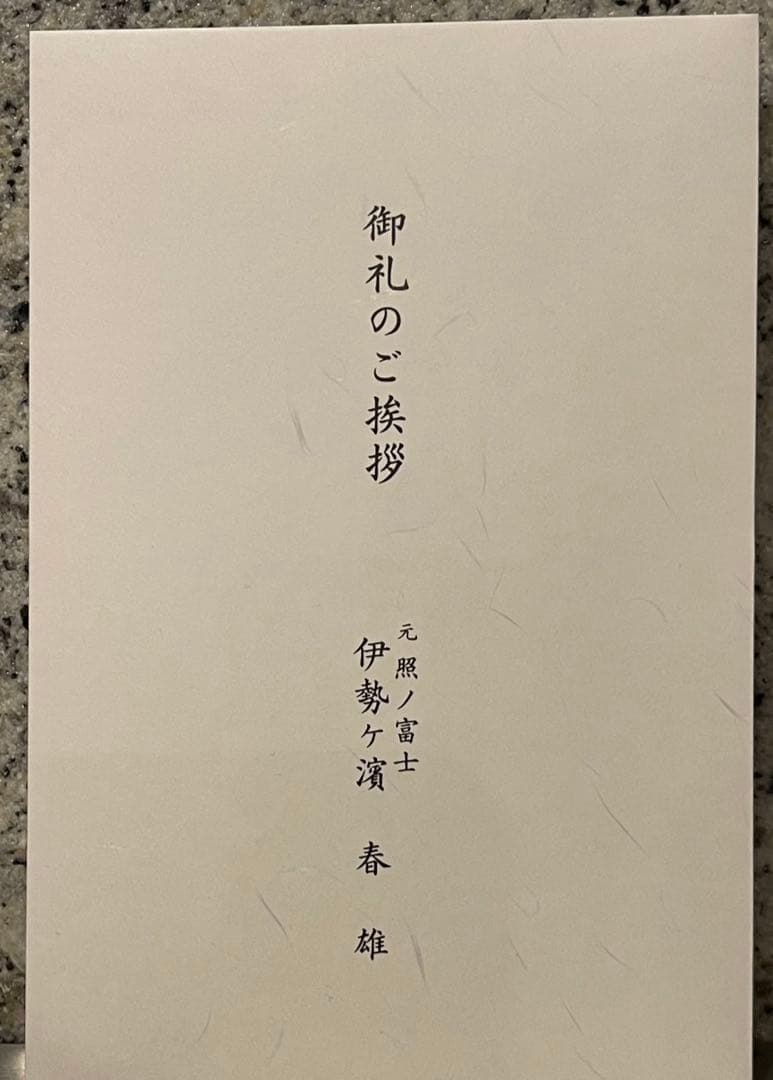 御礼のご挨拶
元 照ノ富士
伊勢ケ濱 春雄